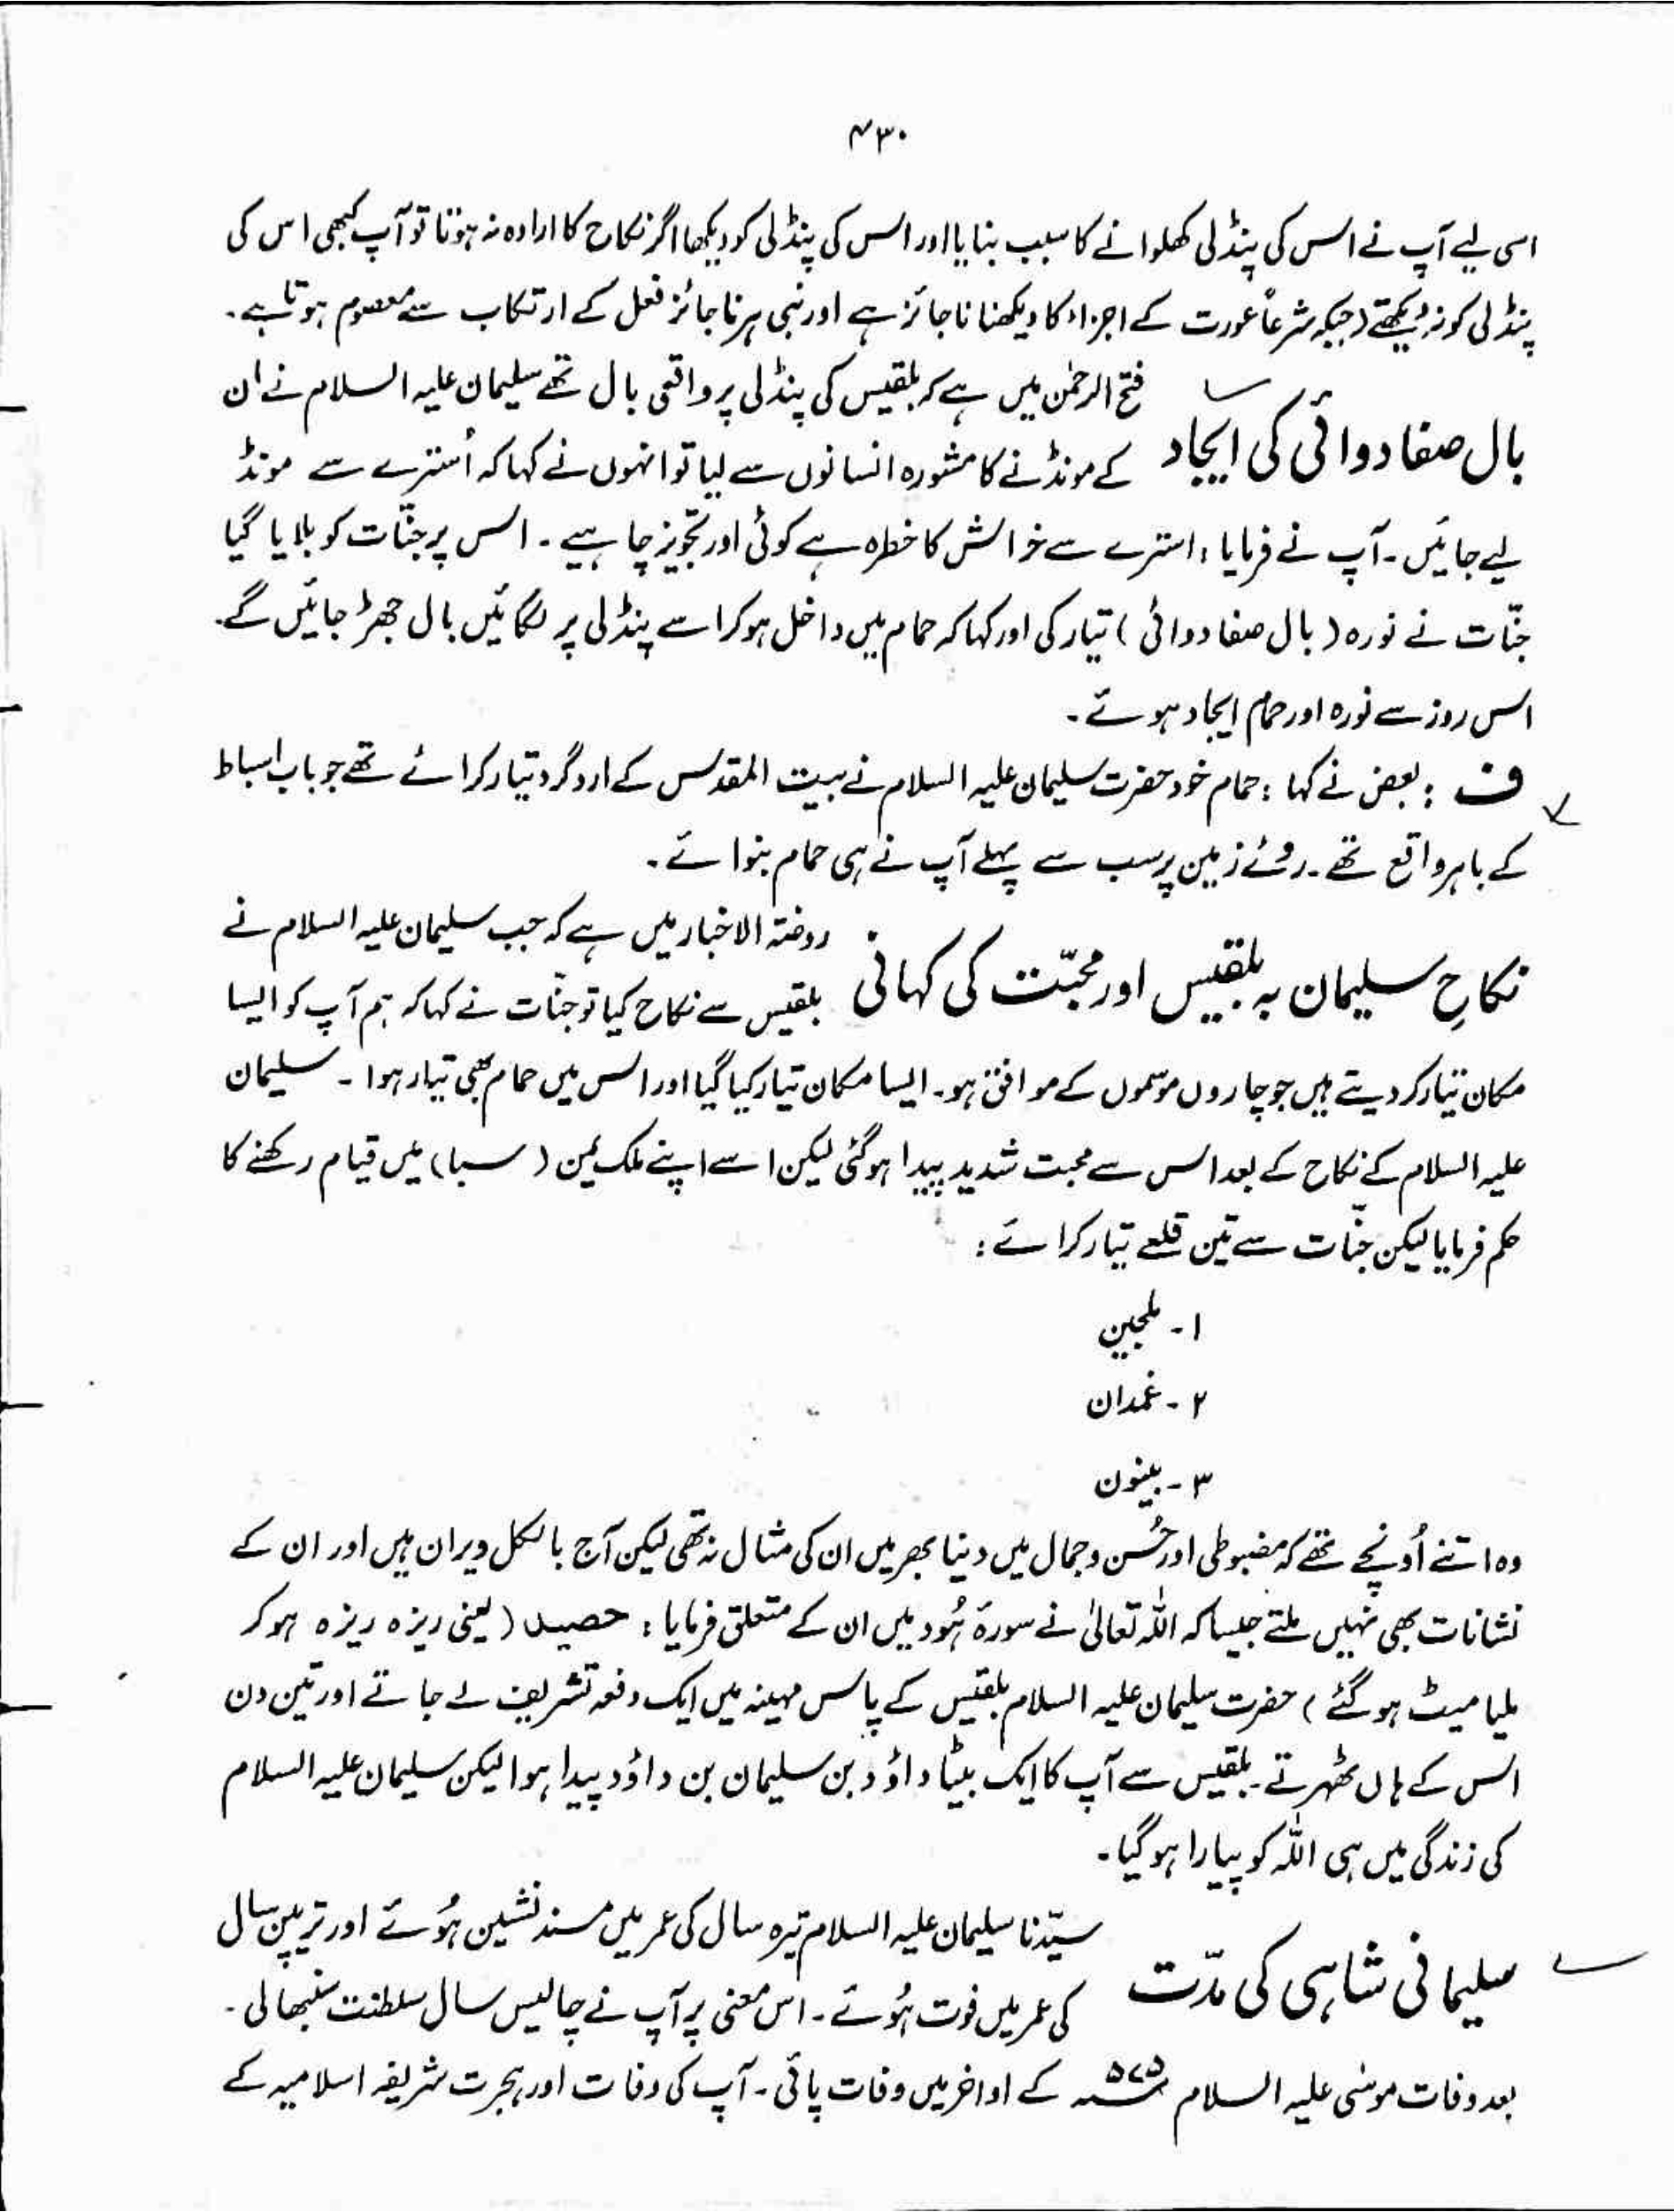 ۴۳۰
اسی لیے آپ نے اس کی پنڈلی کھلوانے کا سبب بنایا اور اس کی پنڈلی کو دیکھا اگر نکاح کا ارادہ نہ ہوتا تو آپ کبھی اس کی
پنڈلی کو نہ دیکھتے (جبکہ شرعاً عورت کے اجزاء کا دیکھنا ناجائز ہے اور نبی ہر ناجائز فعل کے ارتکاب سے معصوم ہوتا ہے۔
فتح الرحمٰن میں ہے کہ بلقیس کی پنڈلی پر واقعی بال تھے سلیمان علیہ السلام نے ان
بال صفا دوائی کی ایجاد
کے مونڈنے کا مشورہ انسانوں سے لیا تو انہوں نے کہا کہ اُسترے سے مونڈ
لیے جائیں۔ آپ نے فرمایا: استرے سے خراش کا خطرہ ہے کوئی اور تجویز چاہیے۔ اس پر جنّات کو بلایا گیا
جنّات نے نورہ (بال صفا دوائی) تیار کی اور کہا کہ حمام میں داخل ہو کر اسے پنڈلی پر لگائیں بال جھڑ جائیں گے۔
اس روز سے نورہ اور حمام ایجاد ہوئے۔
ف : بعض نے کہا : حمام خود حضرت سلیمان علیہ السلام نے بیت المقدس کے ارد گرد تیار کرائے تھے جو باب اسباط
کے باہر واقع تھے۔ روئے زمین پر سب سے پہلے آپ نے ہی حمام بنوائے۔
روضۃ الاخبار میں ہے کہ جب سلیمان علیہ السلام نے
نکاحِ سلیمان بہ بلقیس اور محبّت کی کہانی
بلقیس سے نکاح کیا تو جنّات نے کہا کہ ہم آپ کو ایسا
مکان تیار کر دیتے ہیں جو چاروں موسموں کے موافق ہو۔ ایسا مکان تیار کیا گیا اور اس میں حمام بھی تیار ہوا۔ سلیمان
علیہ السلام کے نکاح کے بعد اس سے محبت شدید پیدا ہو گئی لیکن اسے اپنے ملک یمن (سبا) میں قیام رکھنے کا
حکم فرمایا لیکن جنّات سے تین قلعے تیار کرائے :
۱۔ ملجین
۲۔ غمدان
۳۔ بینون
وہ اتنے اُونچے تھے کہ مضبوطی اور حُسن و جمال میں دنیا بھر میں ان کی مثال نہ تھی لیکن آج بالکل ویران ہیں اور ان کے
نشانات بھی نہیں ملتے جیسا کہ اللہ تعالیٰ نے سورۃ ہُود میں ان کے متعلق فرمایا : حصید (یعنی ریزہ ریزہ ہو کر
ملیا میٹ ہو گئے) حضرت سلیمان علیہ السلام بلقیس کے پاس مہینہ میں ایک دفعہ تشریف لے جاتے اور تین دن
اس کے ہاں ٹھہرتے۔ بلقیس سے آپ کا ایک بیٹا داؤد بن سلیمان بن داؤد پیدا ہوا لیکن سلیمان علیہ السلام
کی زندگی میں ہی اللہ کو پیارا ہو گیا۔
سیّدنا سلیمان علیہ السلام تیرہ سال کی عمر میں مسند نشین ہُوئے اور ترپین سال
سلیمانی شاہی کی مدّت
کی عمر میں فوت ہُوئے۔ اس معنی پر آپ نے چالیس سال سلطنت سنبھالی۔
بعد وفات موسٰی علیہ السلام ۵۷۵ھ کے اواخر میں وفات پائی۔ آپ کی وفات اور ہجرت شریفہ اسلامیہ کے